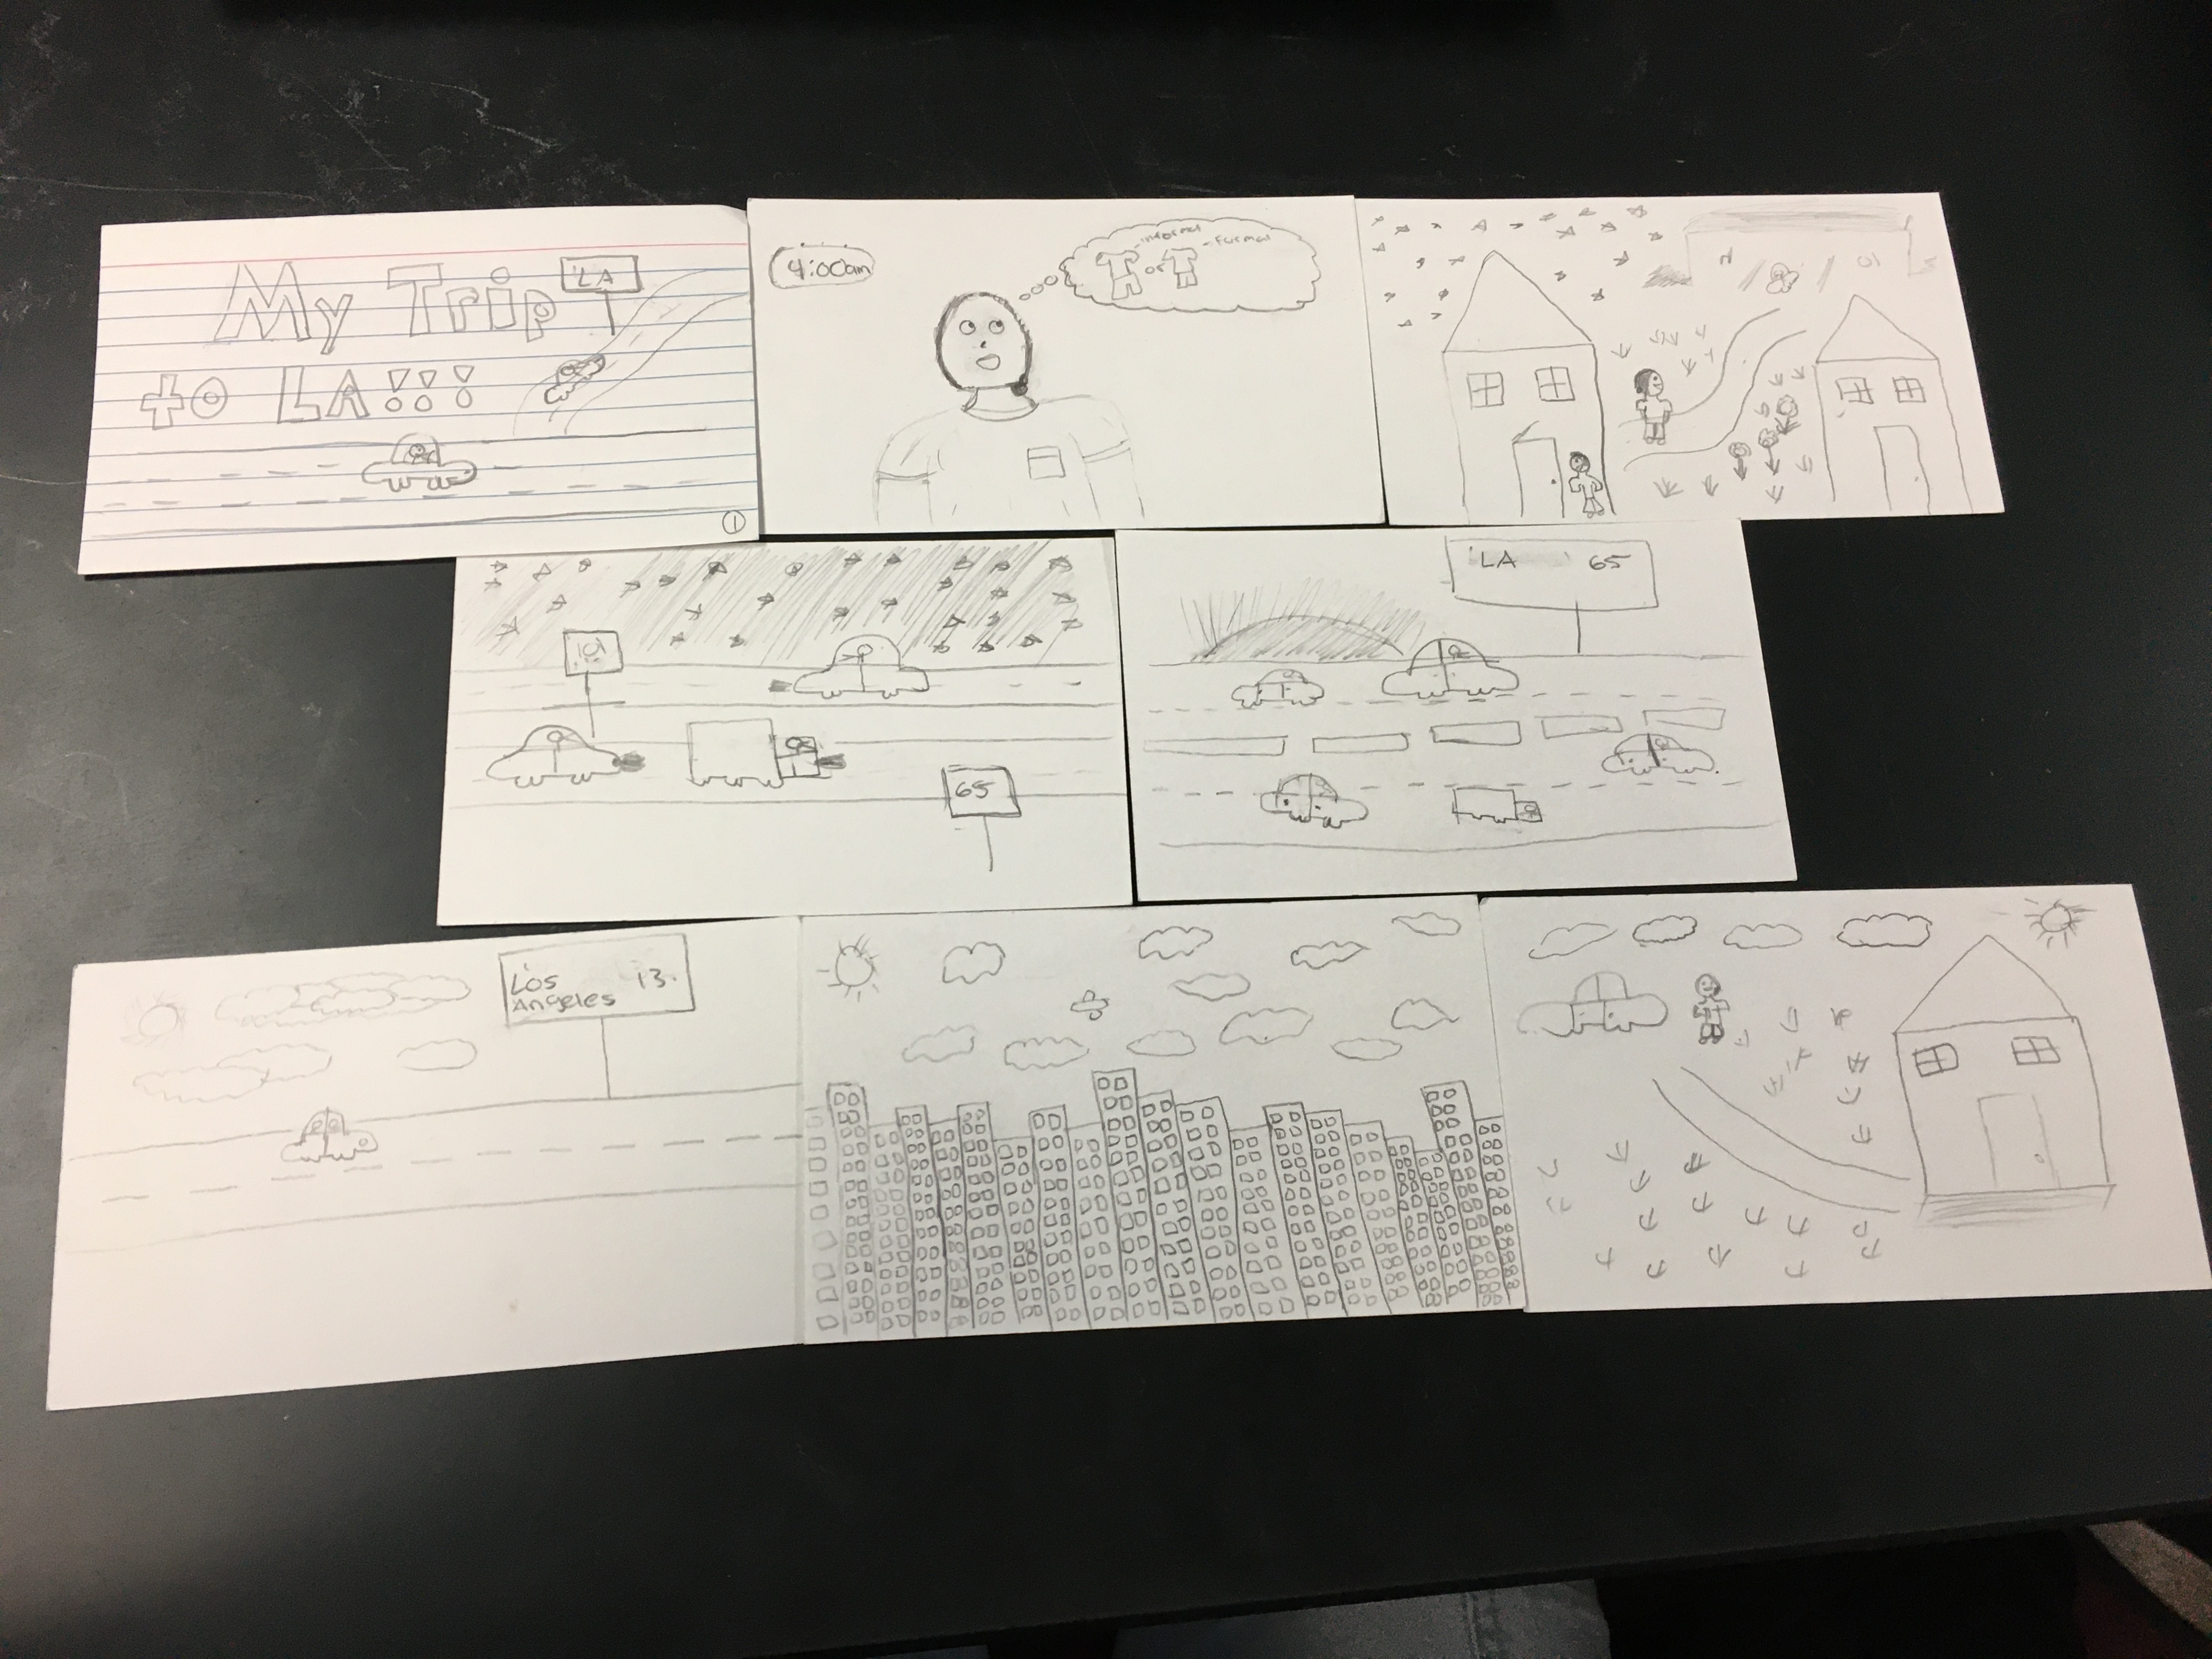 My Trip
LA
to LA!!!
1
4:00am
informal
formal
or
101
65
LA 65
Los
Angeles 13.